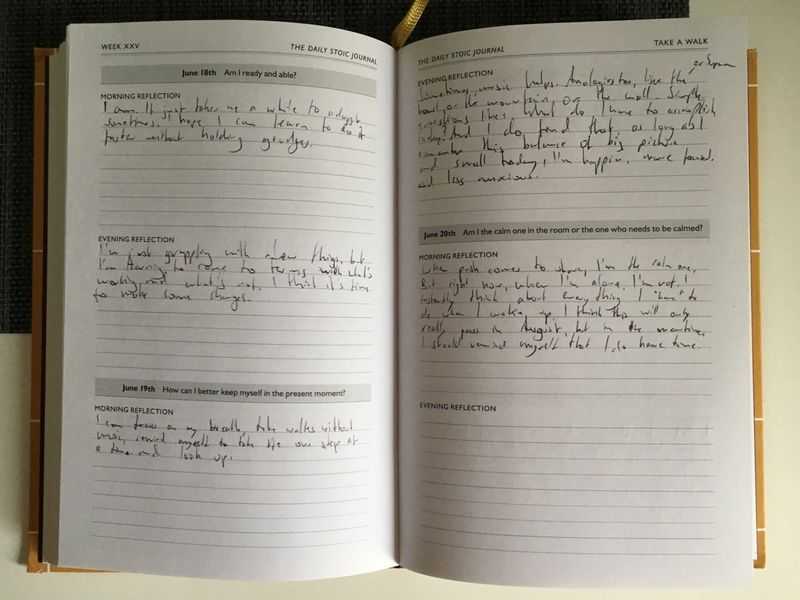 WEEK XXV THE DAILY STOIC JOURNAL
June 18th Am I ready and able?
MORNING REFLECTION
I am. It just takes me a while to adapt
sometimes. I hope I can learn to do it
faster without holding grudges.
EVENING REFLECTION
I'm just grappling with a few things, but
I'm starting to come to terms with what's
working and what's not. I think it's time
to make some changes.
June 19th How can I better keep myself in the present moment?
MORNING REFLECTION
I can focus on my breath, take walks without
music, remind myself to take life one step at
a time and look up.
THE DAILY STOIC JOURNAL TAKE A WALK
EVENING REFLECTION
Sometimes, music helps. Analogies too, like the
or the mountain, or the wall. Simple
questions like: What do I have to accomplish
today? And I do find that, as long as I
remember this balance of big picture
and small today, I'm happier, more focused
and less anxious.
June 20th Am I the calm one in the room or the one who needs to be calmed?
MORNING REFLECTION
When push comes to shove, I'm the calm one.
But right now, when I'm alone, I'm not. I
instantly think about everything I "have" to
do when I wake up. I think this will only
really pass in August, but in the meantime,
I should remind myself that I do have time.
EVENING REFLECTION